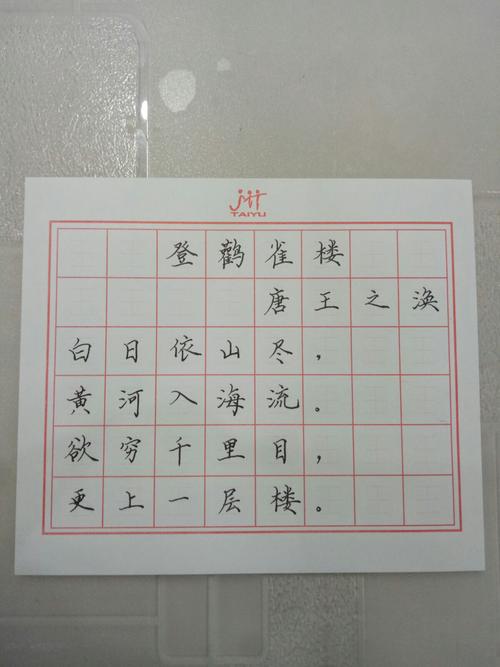 TAIYU
登鹳雀楼
唐王之涣
白日依山尽，
黄河入海流。
欲穷千里目，
更上一层楼。